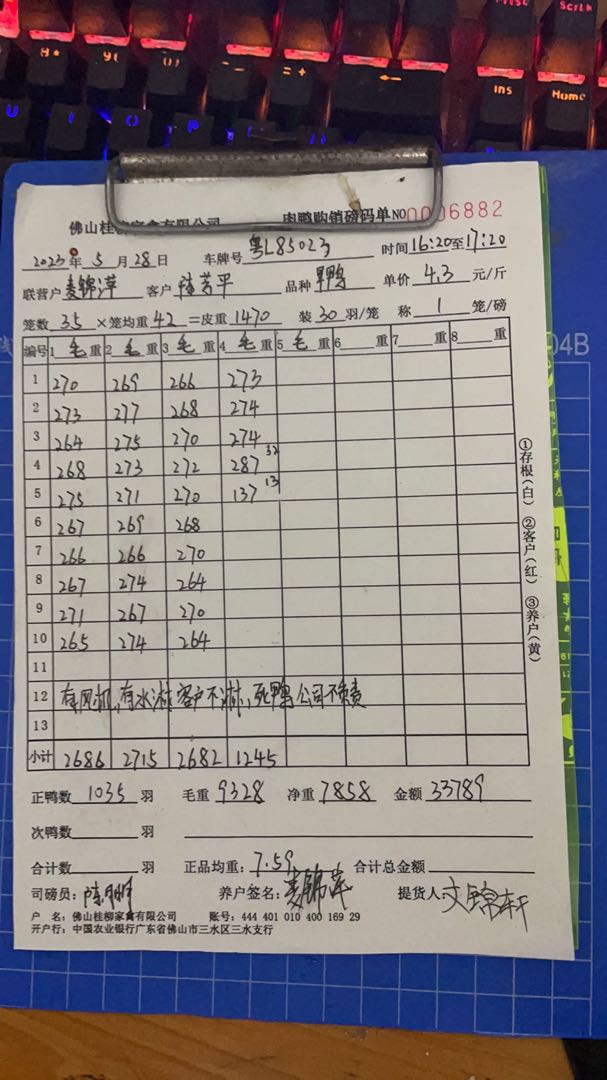 Scrl
8* 9( 0) - =+ ← Ins Home
U I O P
04B
佛山桂柳家禽有限公司 肉鸭购销磅码单 NO 0006882
2023年 5 月 28 日 车牌号 粤L85023 时间 16:20至17:20
联营户 麦锦萍 客户 品种 单价 4.3 元/斤
笼数 35 ×笼均重 42 =皮重 1470 装 30 羽/笼 称 1 笼/磅
编号 1 毛 重 2 毛 重 3 毛 重 4 毛 重 5 毛 重 6 重 7 重 8 重
1 270 269 266 273
2 273 277 268 274
3 264 275 270 274
4 268 273 272 287 32
5 275 271 270 137 13
6 267 269 268
7 266 266 270
8 267 274 264
9 271 267 270
10 265 274 264
11
12 有风机,有水淋,客户不淋,死鸭公司不负责
13
小计 2686 2715 2682 1245
①存根(白) ②客户(红) ③养户(黄)
正鸭数 1035 羽 毛重 9328 净重 7858 金额 33789
次鸭数 羽
合计数 羽 正品均重: 7.59 合计总金额
司磅员: 养户签名: 麦锦萍 提货人: 文锦轩
户 名: 佛山桂柳家禽有限公司 账号: 444 401 010 400 169 29
开户行: 中国农业银行广东省佛山市三水区三水支行